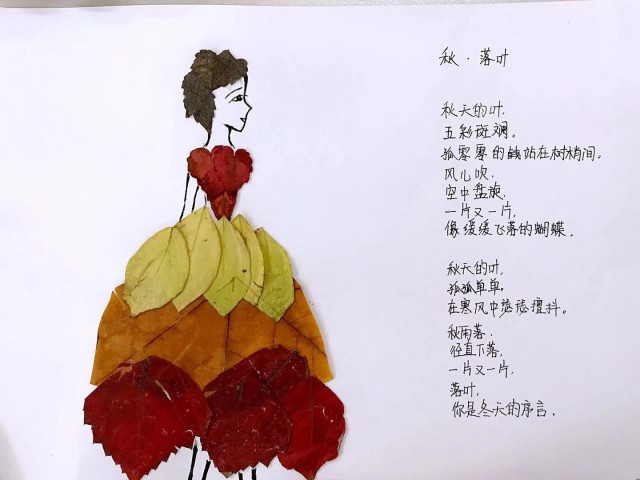 秋·落叶
秋天的叶,
五彩斑斓。
孤零零的站在树梢间。
风儿吹,
空中盘旋,
一片又一片,
像缓缓飞落的蝴蝶。
秋天的叶,
孤孤单单。
在寒风中瑟瑟擅抖。
秋雨落,
径直下落,
一片又一片,
落叶,
你是冬天的序言.